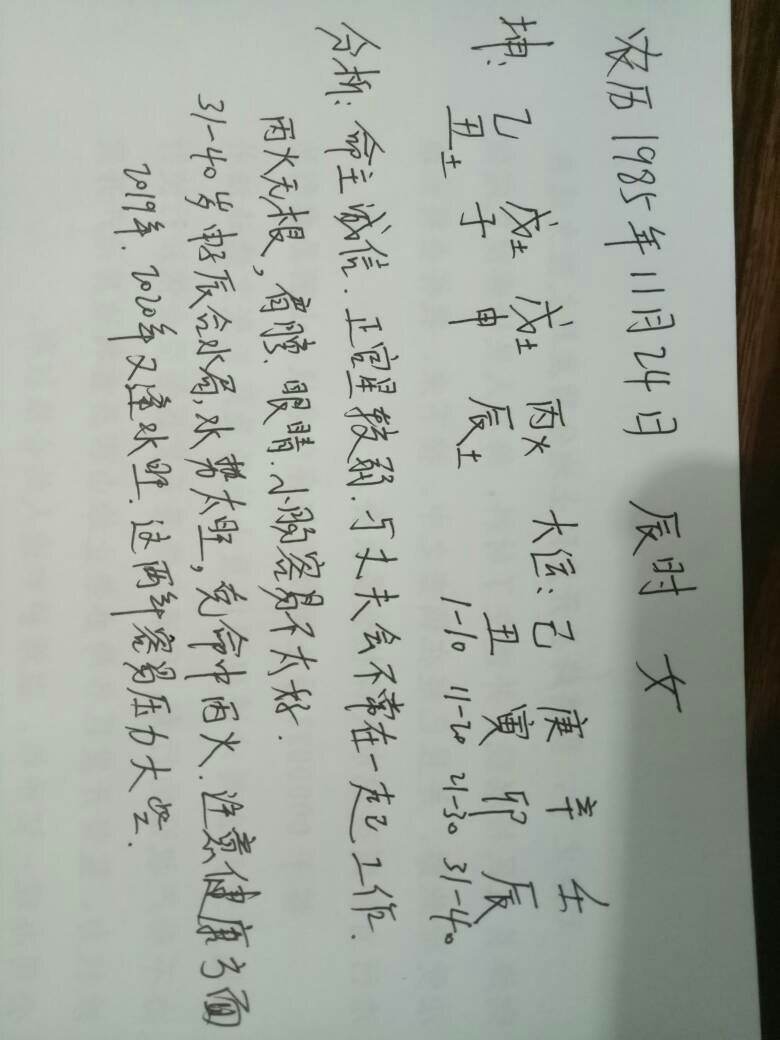 农历1985年11月24日 辰时 女
坤: 乙 戊土 戊土 丙火 大运: 己 庚 辛 壬
丑土 子 申 辰土 丑 寅 卯 辰
1-10 11-20 21-30 31-40
分析: 命主诚信. 正官星较弱. 与丈夫会不常在一起工作.
丙火无根, 肩膀、眼睛.小肠容易不太好.
31-40岁 申子辰合水局, 水势太旺, 克命中丙火. 注意健康方面
2019年. 2020年又逢水旺. 这两年容易压力大些.